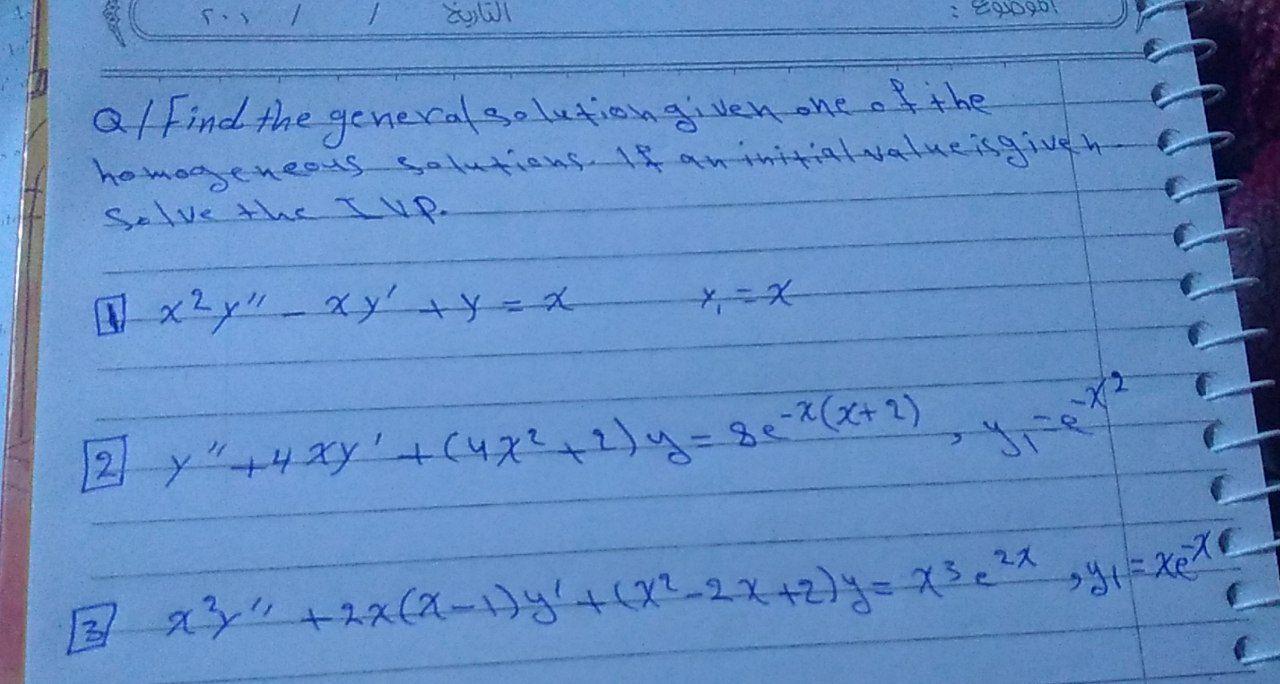 الموضوع : التاريخ / / ٢٠١
Q/ Find the general solution given one of the
homogeneous solutions. If an initial value is given
Solve the IVP.
1 x²y" - xy' + y = x y₁ = x
2 y" + 4xy' + (4x² + 2)y = 8e^-x(x+2) , y₁ = e^-x²
3 x²y" + 2x(x-1)y' + (x² - 2x + 2)y = x³e^2x , y₁ = xe^-x